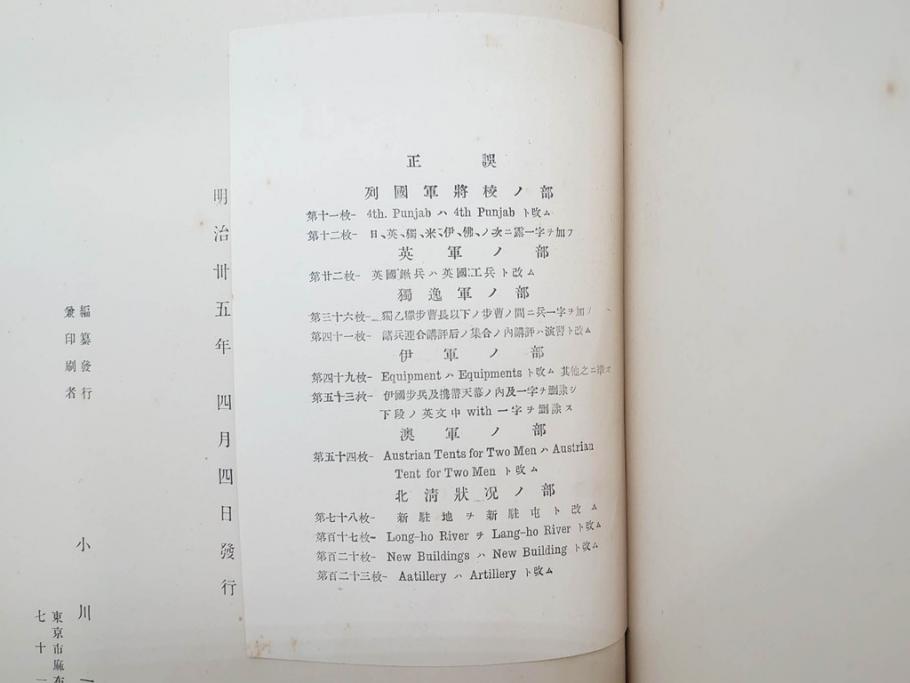 正誤
列國軍將校ノ部
第十一枚- 4th. Punjab ハ 4th Punjab ト改ム
第十二枚- 日、英、獨、米、伊、佛、ノ次ニ露一字ヲ加フ
英軍ノ部
第廿二枚- 英國鍬兵ハ英國工兵ト改ム
獨逸軍ノ部
第三十六枚- 獨乙 步曹長以下ノ步曹ノ間ニ兵一字ヲ加フ
第四十一枚- 諸兵連合講評后ノ集合ノ內講評ハ演習ト改ム
伊軍ノ部
第四十九枚- Equipment ハ Equipments ト改ム 其他之ニ準ス
第五十三枚- 伊國步兵及携帶天幕ノ內及一字ヲ刪除シ
下段ノ英文中 with 一字ヲ刪除ス
澳軍ノ部
第五十四枚- Austrian Tents for Two Men ハ Austrian
Tent for Two Men ト改ム
北淸狀况ノ部
第七十八枚- 新駐地ヲ新駐屯ト改ム
第百十七枚- Long-ho River ヲ Lang-ho River ト改ム
第百二十枚- New Buildings ハ New Building ト改ム
第百二十三枚- Aatillery ハ Artillery ト改ム
明治卅五年四月四日發行
編纂發行
兼印刷者
小川一
東京市麻布
七十一